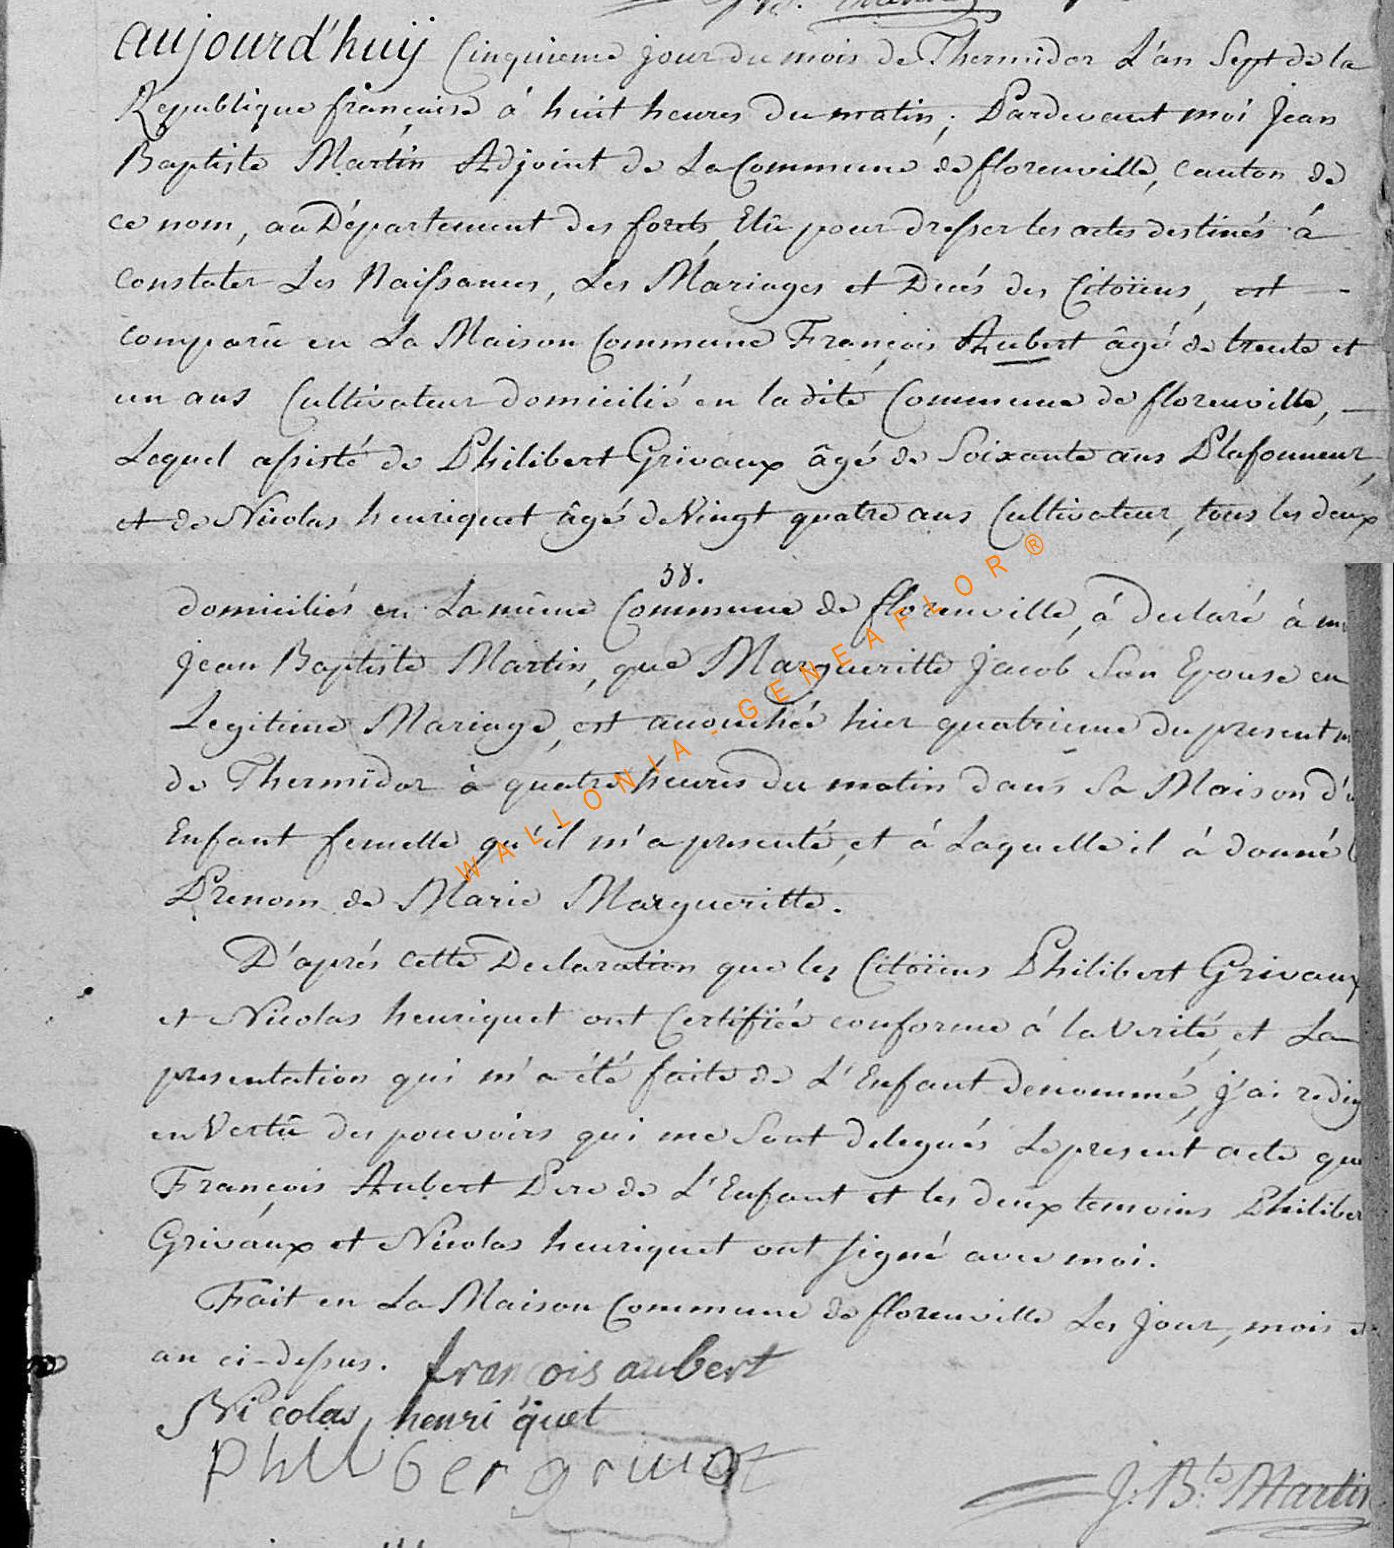 aujourd'huÿ Cinquieme jour du mois de Thermidor L'an Sept de la
Republique francaise á huit heures du matin; Pardevant moi Jean
Baptiste Martin Adjoint de La Commune de florenville, canton de
ce nom, au Département des forets, Elû pour dresser les actes destinés á
constater Les Naissances, Les Mariages et Decés des Citoïens, est —
comparû en La Maison Commune François Aubert âgé de trente et
un ans Cultivateur domicilié en la dite Commune de florenville, —
Lequel assisté de Philibert Grivaux âgé de Soixante ans Plafonneur,
et de Nicolas henriquet âgé de Vingt quatre ans Cultivateur, tous les deux
38.
domiciliés en La même Commune de florenville, á declaré á
Jean Baptiste Martin, que Margueritte Jacob Son Epouse en
Legitime Mariage, est accouchée hier quatrieme du present
de Thermidor á quatre heures du matin dans Sa Maison
Enfant femelle qu'il m'a presenté, et á Laquelle il á donné
Prenom de Marie Margueritte.
D'aprés cette Declaration que les Citoïens Philibert Grivaux
et Nicolas henriquet ont Certifiée conforme á la Verité, et La
presentation qui m'a été faite de L'Enfant denommé, j'ai redig
en Vertû des pouvoirs qui me Sont delegués Le present acte que
François Aubert Pere de L'Enfant et les deux temoins Philiber
Grivaux et Nicolas henriquet ont signé avec moi.
Fait en La Maison Commune de florenville Les Jour, mois et
an ci-dessus. francois aubert
Nicolas henriquet
J. B.te Martin
WALLONIA - GENEAFLOR ®